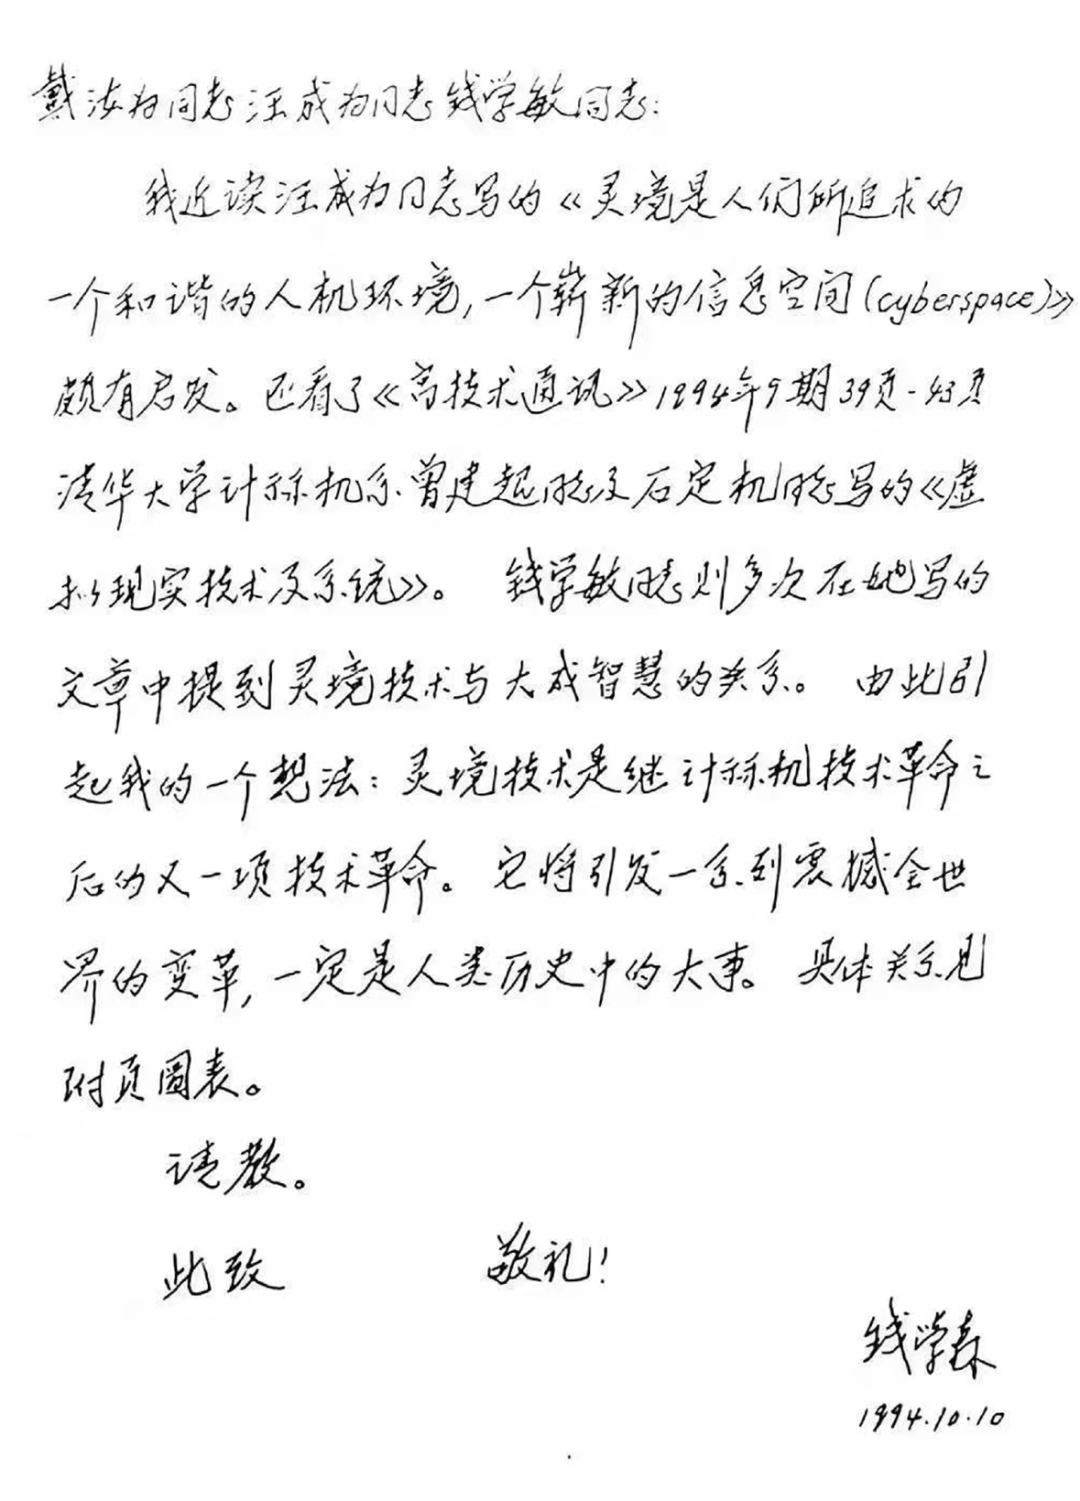 戴汝为同志汪成为同志钱学敏同志:
我近读汪成为同志写的《灵境是人们所追求的
一个和谐的人机环境,一个崭新的信息空间(cyberspace)》
颇有启发。还看了《高技术通讯》1994年9期39页-43页
清华大学计祘机系曾建超同志及石定机同志写的《虚
拟现实技术及系统》。 钱学敏同志则多次在她写的
文章中提到灵境技术与大成智慧的关系。 由此引
起我的一个想法:灵境技术是继计祘机技术革命之
后的又一项技术革命。它将引发一系列震撼全世
界的变革,一定是人类历史中的大事。 具体关系见
附页圖表。
请教。
此致 敬礼!
钱学森
1994.10.10